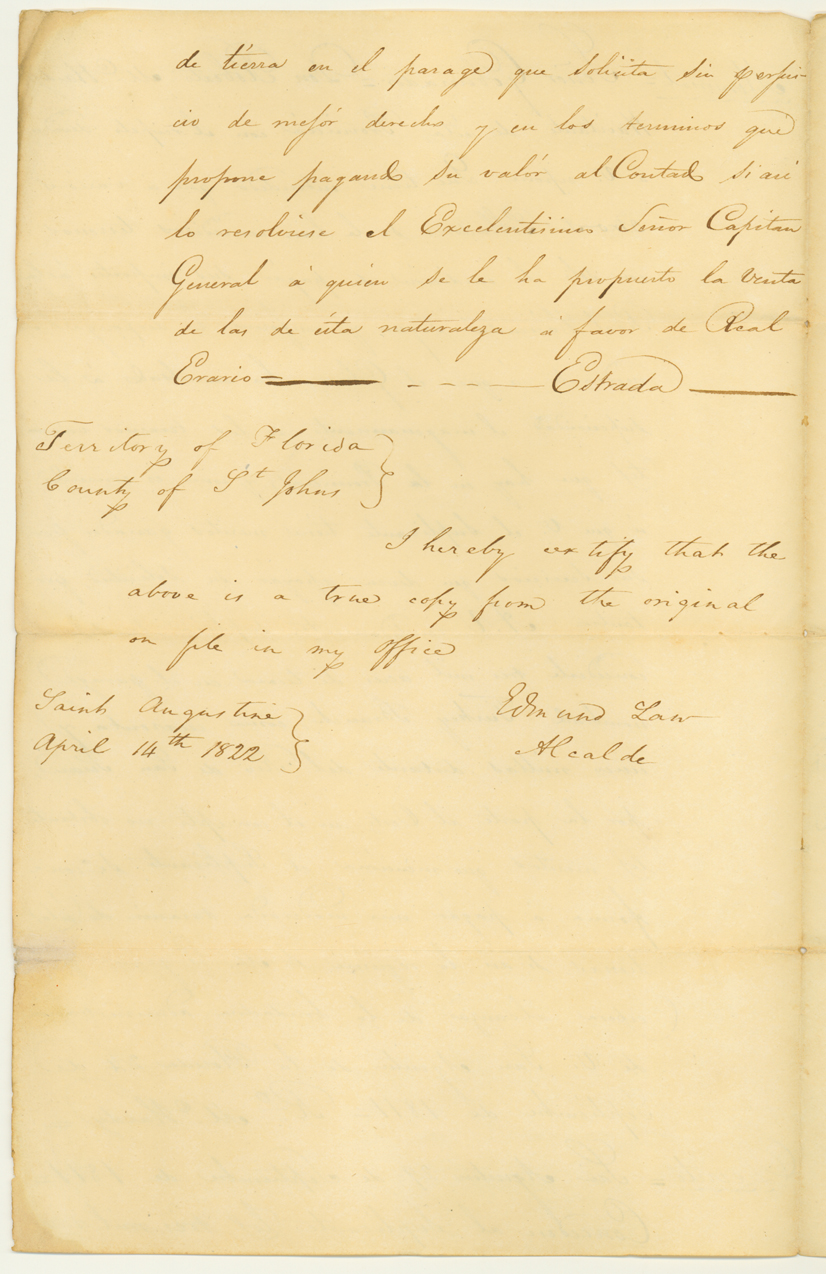 de tierra en el parage que solicita sin perjui-
cio de mejór derecho y en los terminos que
propone pagando su valór al Contado si asi
lo resolviese el Excelentisimo Señor Capitan
General á quien se le ha propuesto la Venta
de las de ésta naturaleza á favor de Real
Erario= — - - - — Estrada —
Territory of Florida }
County of St Johns }
I hereby certify that the
above is a true copy from the original
on file in my office
Saint Augustine }
April 14th 1822 }
Edmund Law
Alcalde